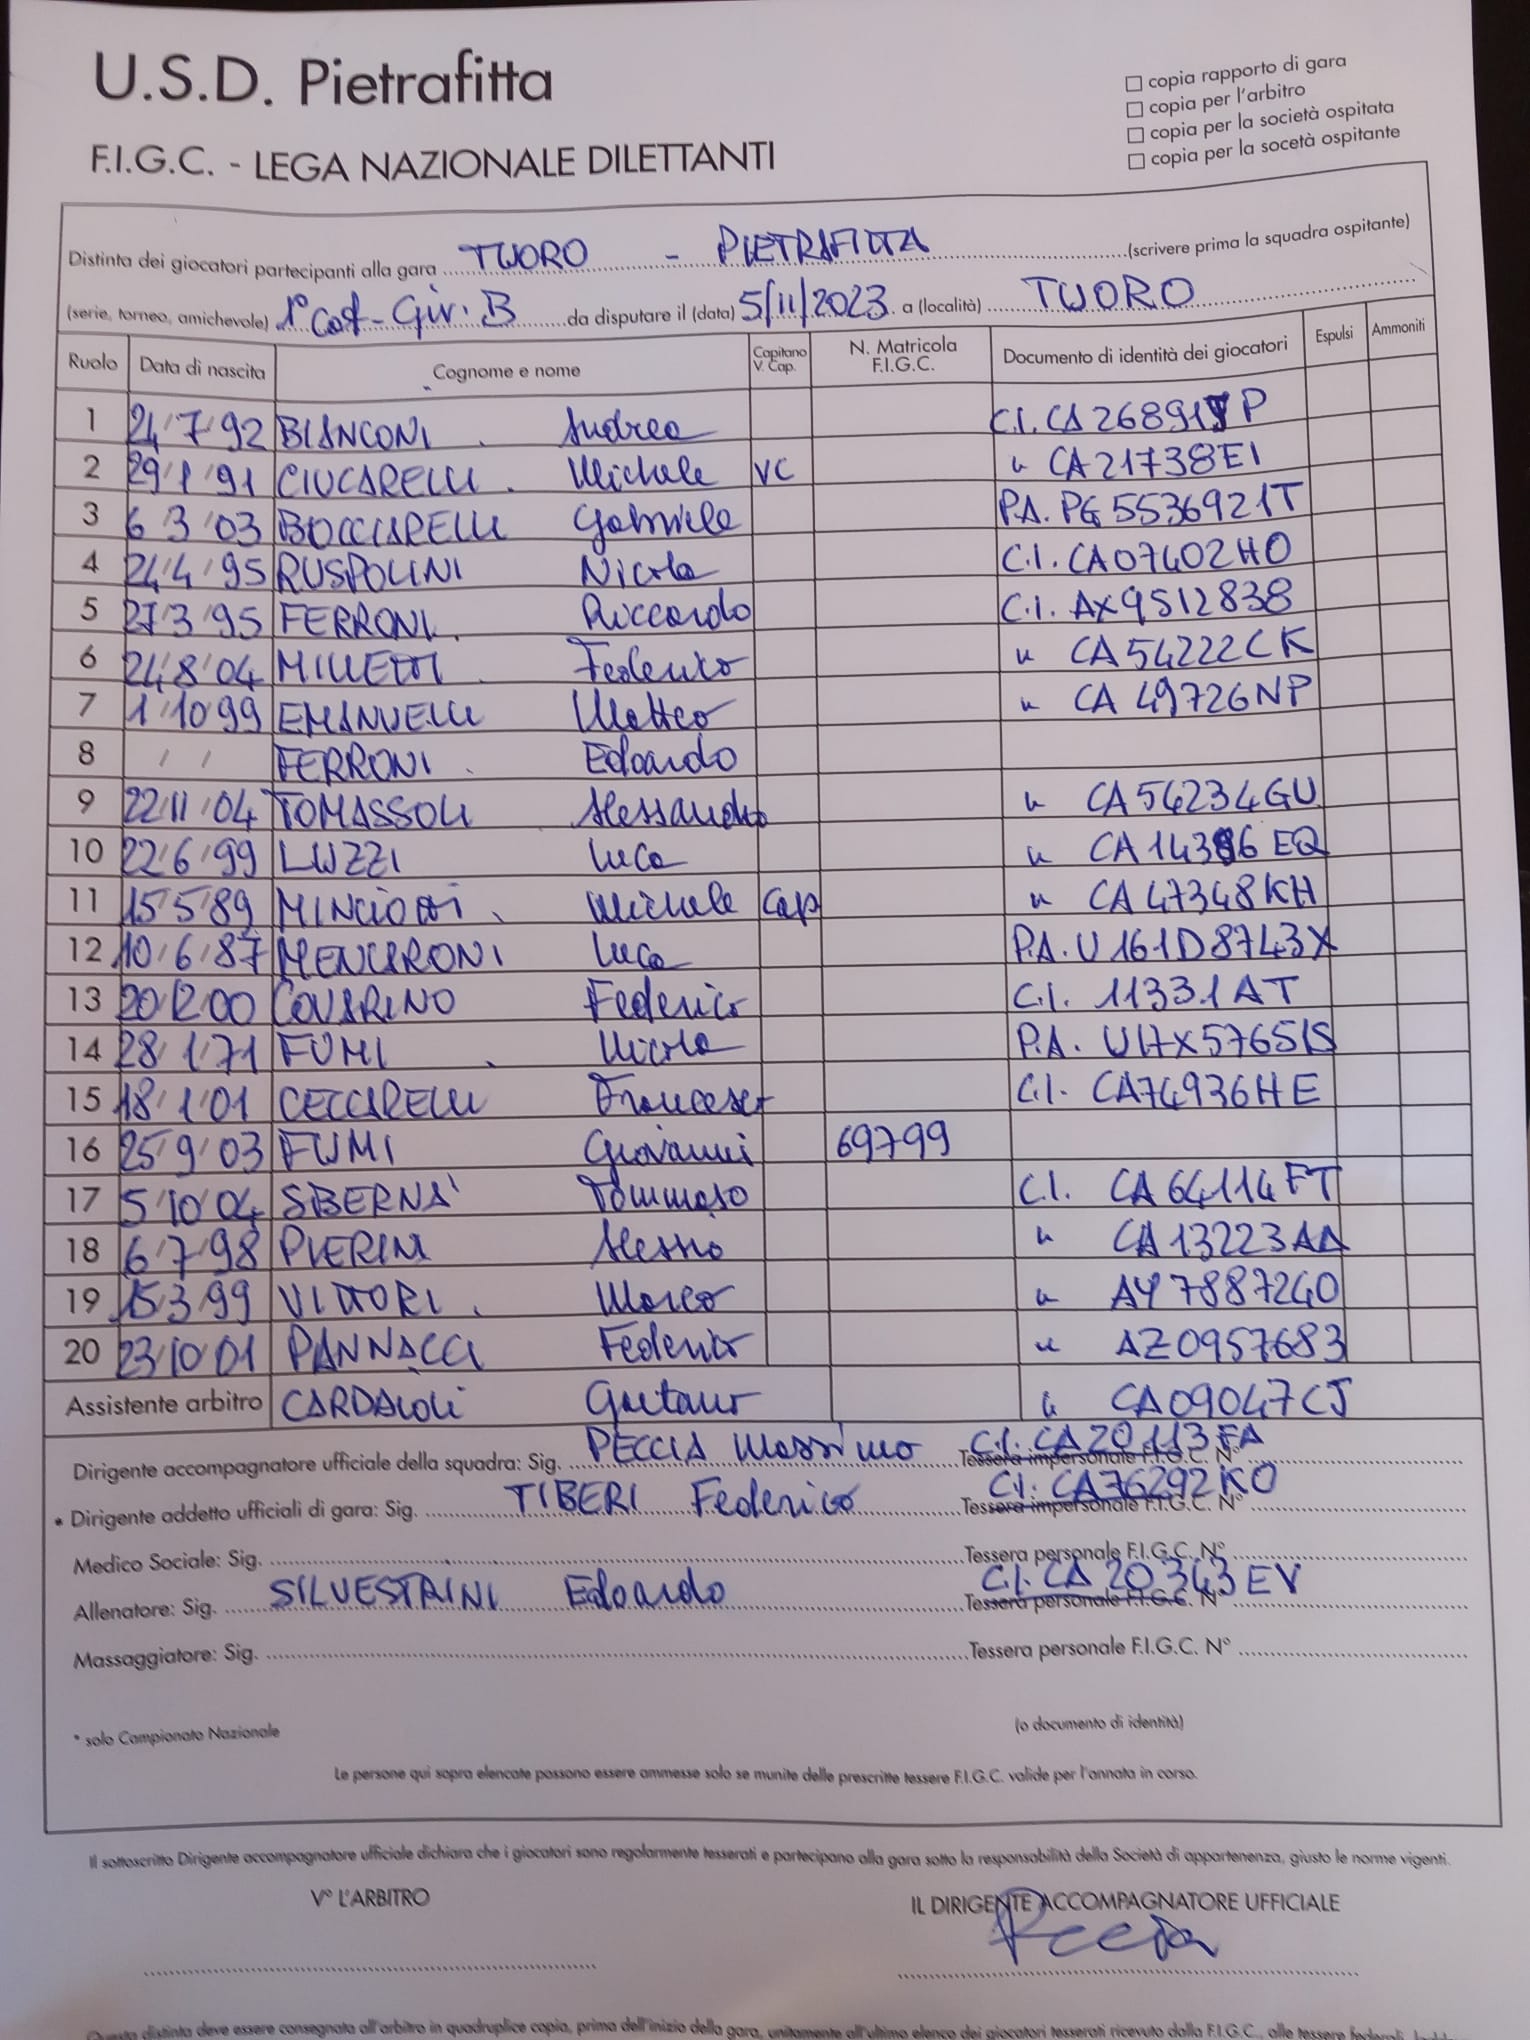 U.S.D. Pietrafitta
F.I.G.C. - LEGA NAZIONALE DILETTANTI
copia rapporto di gara
copia per l'arbitro
copia per la società ospitata
copia per la socetà ospitante
Distinta dei giocatori partecipanti alla gara TUORO - PIETRAFITTA (scrivere prima la squadra ospitante)
(serie, torneo, amichevole) 1° Cat - Gir. B da disputare il (data) 5/11/2023 a (località) TUORO
Ruolo Data di nascita Cognome e nome Capitano V. Cap. N. Matricola F.I.G.C. Documento di identità dei giocatori Espulsi Ammoniti
1 24/7/92 BIANCONI Andrea C.I. CA 26891 P
2 29/1/91 CIUCARELLI Michele VC " CA21738EI
3 6 3/03 BOCCIARELLI Gabriele P.A. PG5536921T
4 24/4/95 RUSPOLINI Nicola C.I. CA07402HO
5 27/3/95 FERRONI Riccardo C.I. AX9512838
6 24/8/04 MILLETTI Federico " CA54222CK
7 1/10/99 EMANUELLI Matteo " CA 49726NP
8 / / FERRONI Edoardo
9 22/11/04 TOMASSOLI Alessandro " CA54234GU
10 22/6/99 LUZZI Luca " CA14386EQ
11 15/5/89 MINCIOTTI Michele Cap " CA47348KH
12 10/6/87 MENCARONI Luca P.A. U161D8743X
13 20/12/00 COVARINO Federico C.I. 11331AT
14 28/1/71 FUMI Nicola P.A. U17X5765IS
15 18/1/01 CECCARELLI Francesco C.I. CA74936HE
16 25/9/03 FUMI Giovanni 69799
17 5/10/04 SBERNA' Tommaso C.I. CA64114FT
18 6/7/98 PIERINI Alessio " CA13223AA
19 15/3/99 VITTORI Marco " AY7887240
20 23/10/01 PANNACCI Federico " AZ0957683
Assistente arbitro CARDAIOLI Gaetano " CA09047CJ
Dirigente accompagnatore ufficiale della squadra: Sig. PECCIA Massimo Tessera impersonale F.I.G.C. N° C.I. CA20113FA
* Dirigente addetto ufficiali di gara: Sig. TIBERI Federico Tessera impersonale F.I.G.C. N° C.I. CA76292KO
Medico Sociale: Sig. Tessera personale F.I.G.C. N°
Allenatore: Sig. SILVESTRINI Edoardo Tessera personale F.I.G.C. N° C.I. CA 20343EV
Massaggiatore: Sig. Tessera personale F.I.G.C. N°
* solo Campionato Nazionale (o documento di identità)
Le persone qui sopra elencate possono essere ammesse solo se munite delle prescritte tessere F.I.G.C. valide per l'annata in corso.
Il sottoscritto Dirigente accompagnatore ufficiale dichiara che i giocatori sono regolarmente tesserati e partecipano alla gara sotto la responsabilità della Società di appartenenza, giusto le norme vigenti.
V° L'ARBITRO IL DIRIGENTE ACCOMPAGNATORE UFFICIALE
Peccia
Questa distinta deve essere consegnata all'arbitro in quadruplice copia, prima dell'inizio della gara, unitamente all'ultimo elenco dei giocatori tesserati ricevuto dalla F.I.G.C., alle tessere federali